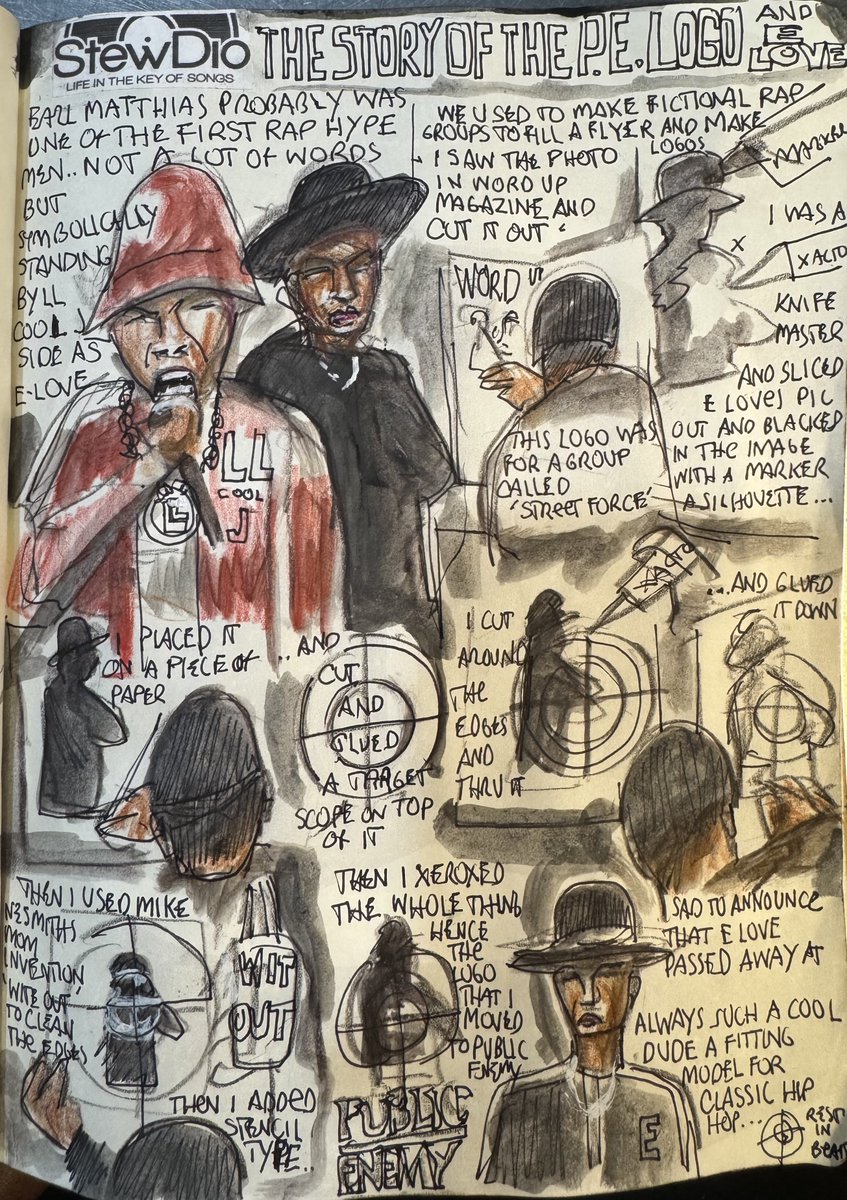 StewDio
LIFE IN THE KEY OF SONGS
THE STORY OF THE P.E. LOGO
AND
E
LOVE
EARL MATTHIAS PROBABLY WAS
ONE OF THE FIRST RAP HYPE
MEN.. NOT A LOT OF WORDS
BUT
SYMBOLICALLY
STANDING
BY LL
COOL J
SIDE AS
E-LOVE
LL
COOL
J
WE USED TO MAKE FICTIONAL RAP
GROUPS TO FILL A FLYER AND MAKE
LOGOS
I SAW THE PHOTO
IN WORD UP
MAGAZINE AND
CUT IT OUT
WORD UP
MARKER
I WAS A
X ACTO
KNIFE
MASTER
AND SLICED
E LOVES PIC
OUT AND BLACKED
IN THE IMAGE
WITH A MARKER
A SILHOUETTE...
THIS LOGO WAS
FOR A GROUP
CALLED
'STREET FORCE'
I PLACED IT
ON A PIECE OF
PAPER
.. AND
CUT
AND
GLUED
A TARGET
SCOPE ON TOP
OF IT
I CUT
AROUND
THE
EDGES
AND
THRU IT
...AND GLUED
IT DOWN
THEN I USED MIKE
NESMITHS
MOM
INVENTION
'WITE OUT'
TO CLEAN
THE EDGES
WIT
OUT
THEN I ADDED
STENCIL
TYPE..
THEN I XEROXED
THE WHOLE THING
HENCE
THE
LOGO
THAT I
MOVED
TO PUBLIC
ENEMY
PUBLIC
ENEMY
SAD TO ANNOUNCE
THAT E LOVE
PASSED AWAY AT
ALWAYS SUCH A COOL
DUDE A FITTING
MODEL FOR
CLASSIC HIP
HOP...
E
REST
IN